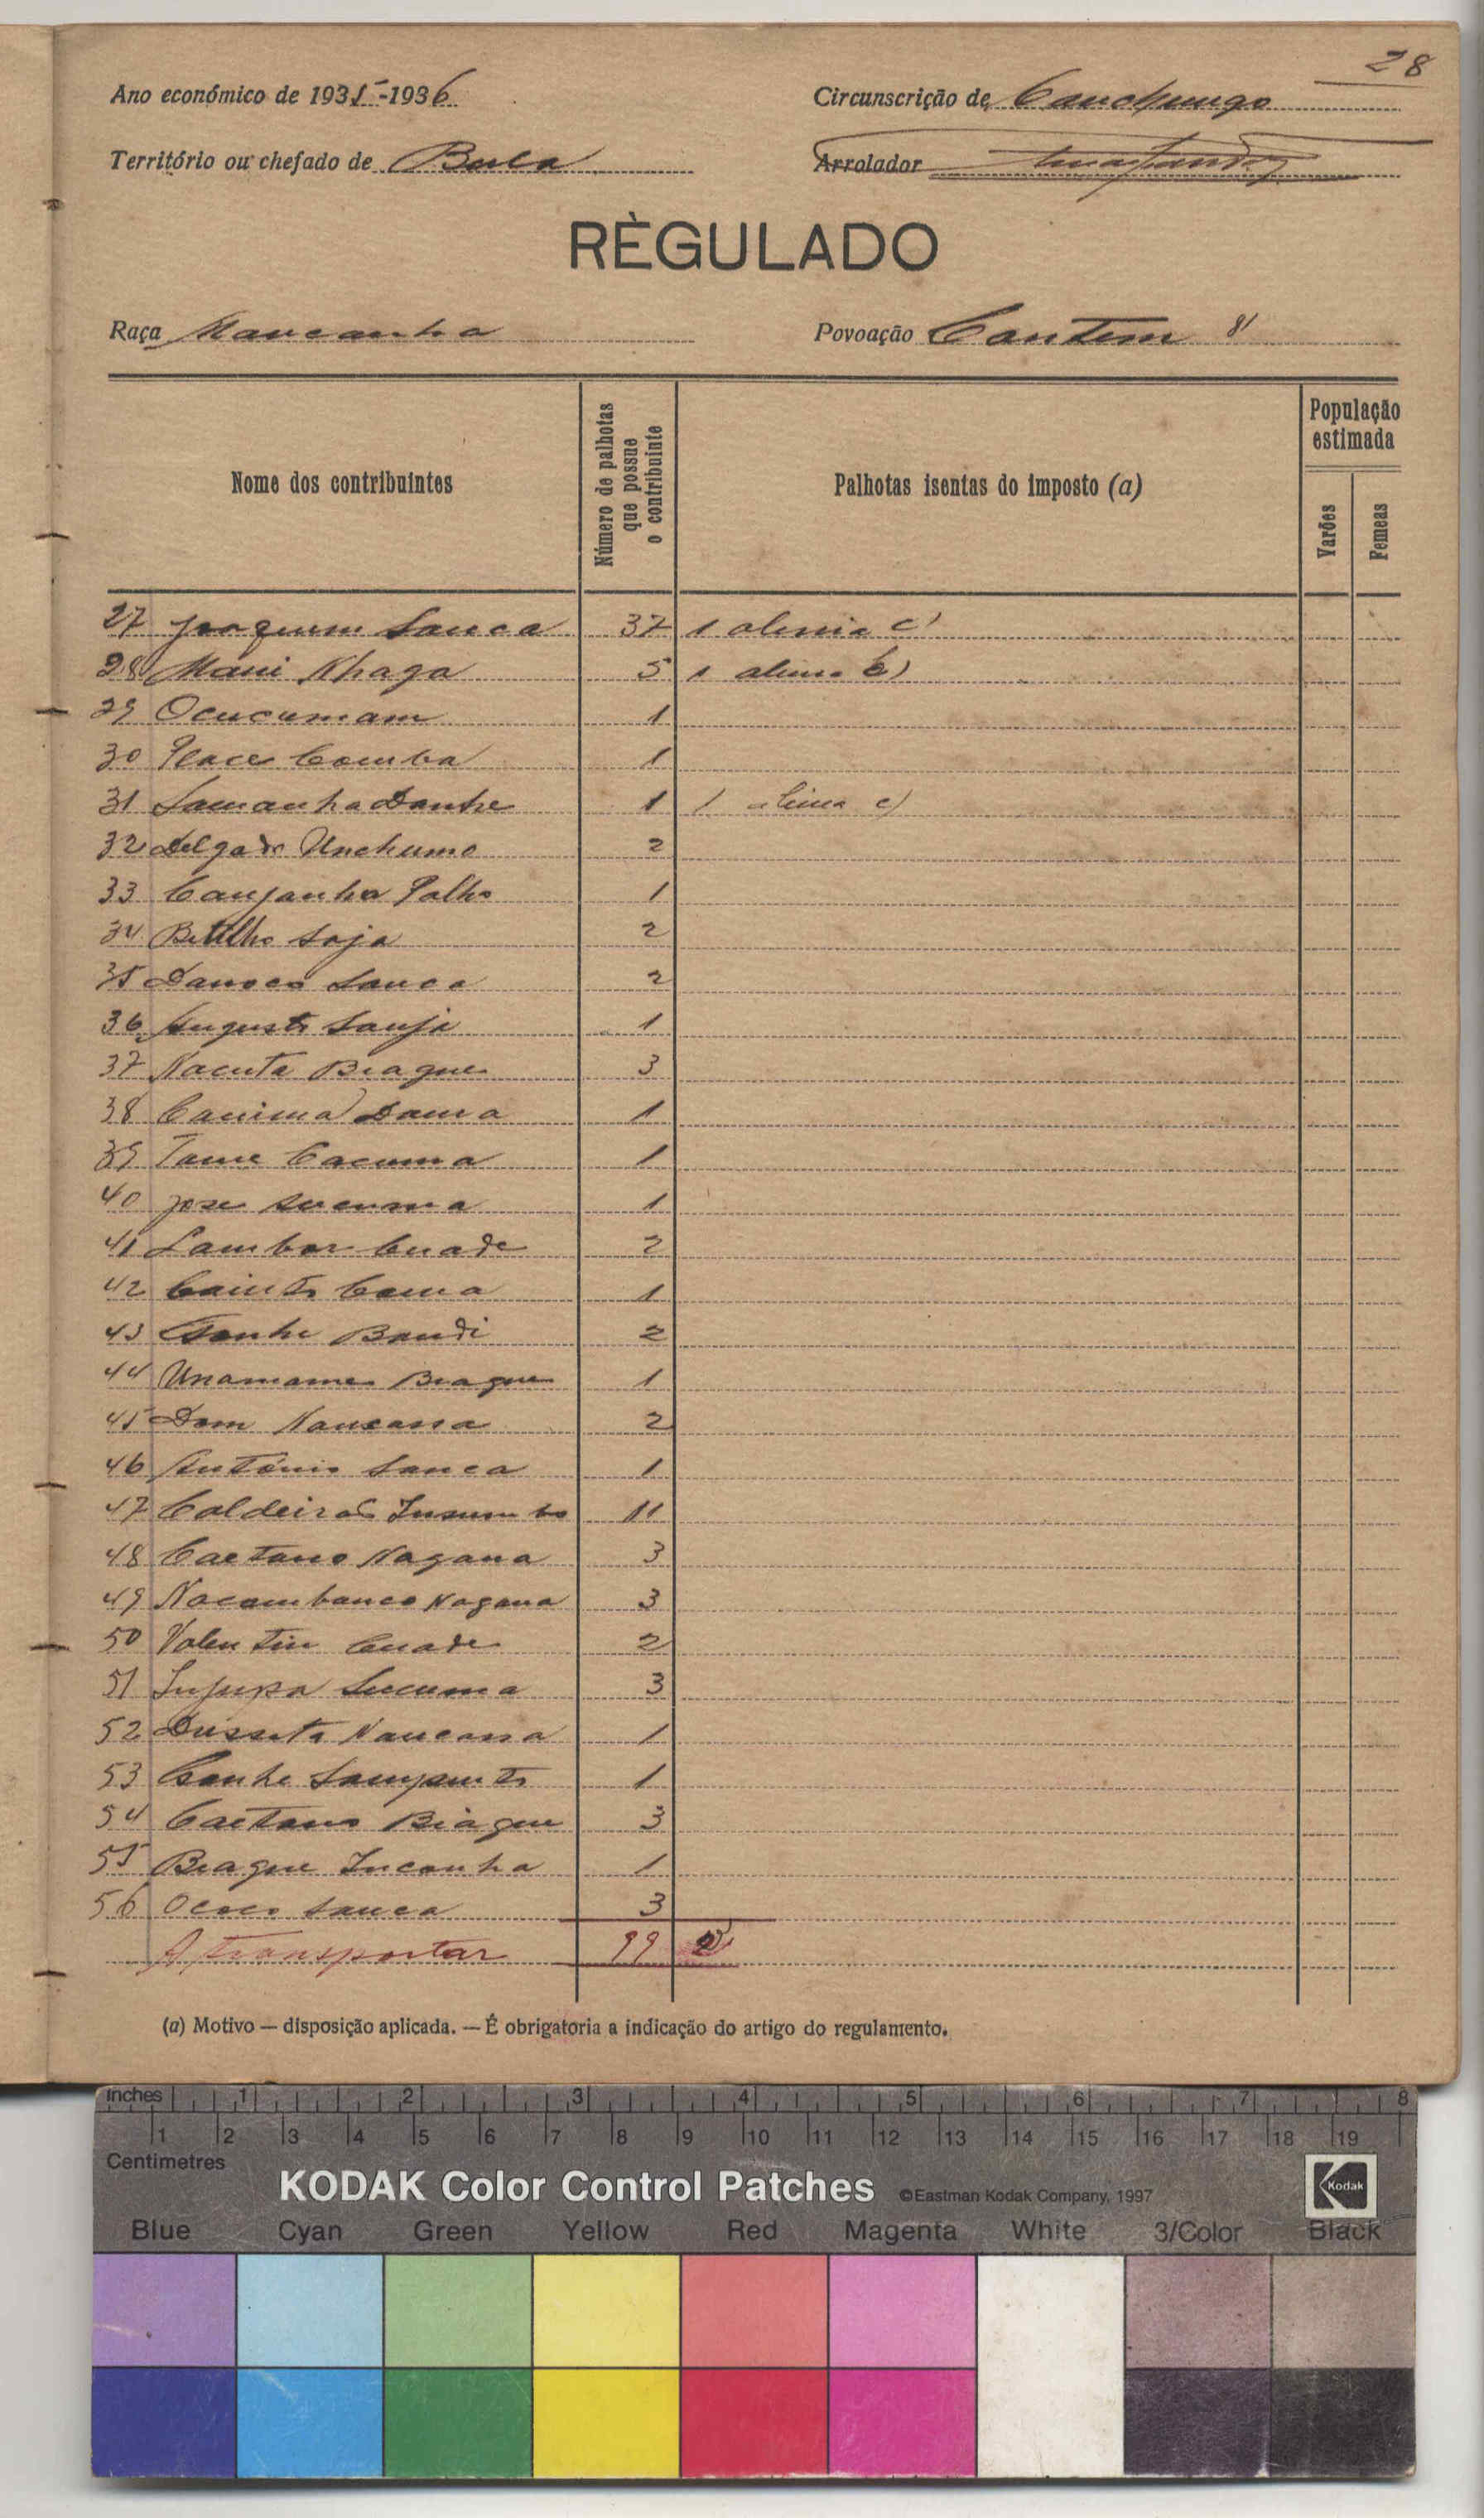 28
Ano económico de 1935-1936
Circunscrição de Canchungo
Território ou chefado de Bula
Arrolador
RÈGULADO
Raça Mancanha
Povoação Cantem
Nome dos contribuintes
Número de palhotas que possue o contribuinte
Palhotas isentas do imposto (a)
População estimada
Varões
Femeas
27 Joaquim Sanca 37 1 alinia c)
28 Mani Nhaga 5 1 alinea b)
29 Ocucumam 1
30 Place Comba 1
31 Samanha Danhe 1 1 alinea c)
32 Delgado Unchumo 2
33 Canjanha Palho 1
34 Betilho Soja 2
35 Sanca 2
36 Augusto Sanji 1
37 Nacuta Biague 3
38 Canima Dama 1
39 Tame Cacuma 1
40 Jose Sucuma 1
41 Lambar Cuade 2
42 Cainto Coma 1
43 Bandi 2
44 Unamame Biague 1
45 Dom Nancassa 2
46 António Sanca 1
47 Caldeiras Insumbo 11
48 Caetano Nagana 3
49 Nacambanco Nagana 3
50 Valentin Cuade 2
51 Injupa Sucuma 3
52 Nancassa 1
53 Canhe 1
54 Caetano Biague 3
55 Biague Incanha 1
56 Ococo Sanca 3
A transportar 99
(a) Motivo — disposição aplicada. — É obrigatoria a indicação do artigo do regulamento.
inches 1 2 3 4 5 6 7 8
1 2 3 4 5 6 7 8 9 10 11 12 13 14 15 16 17 18 19
Centimetres
KODAK Color Control Patches ©Eastman Kodak Company, 1997 Kodak
Blue Cyan Green Yellow Red Magenta White 3/Color Black